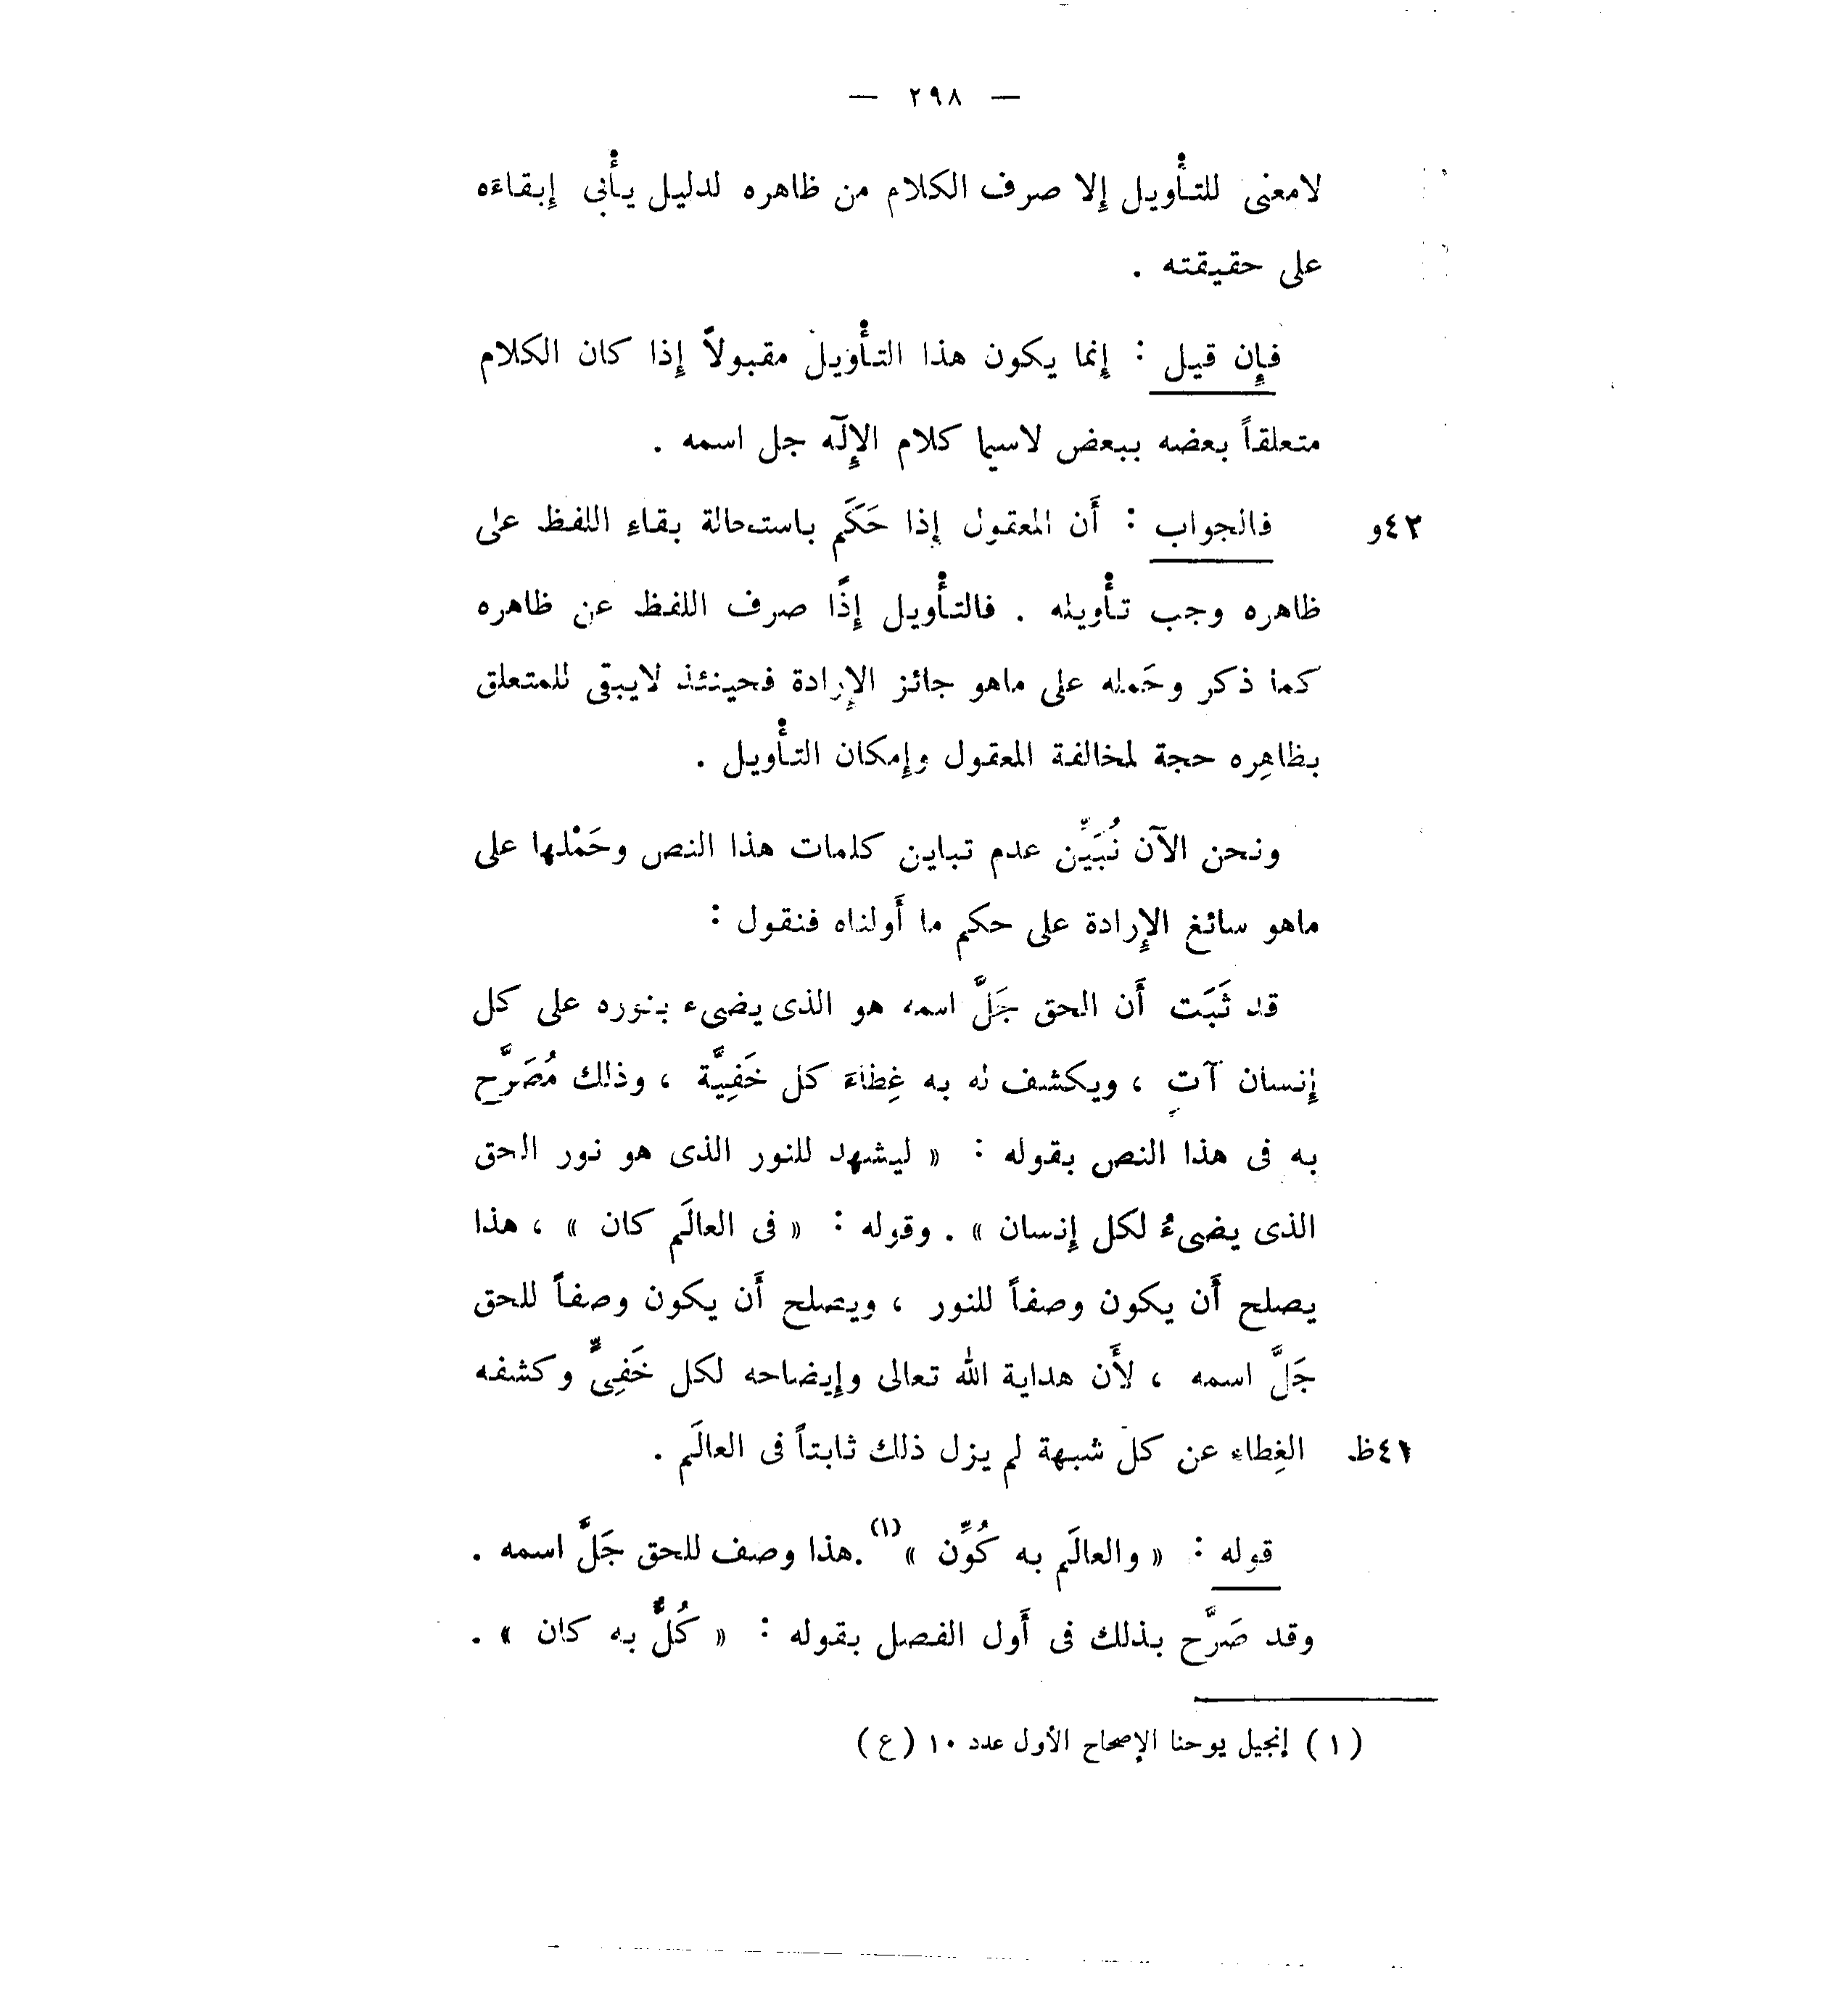 — ٢٩٨ —
لامعنى للتأْويل إِلا صرف الكلام من ظاهره لدليل يأْبى إِبقاءَه
على حقيقته .
فإِن قيل : إِنما يكون هذا التأْويل مقبولاً إِذا كان الكلام
متعلقاً بعضه ببعض لاسيما كلام الإِلٓه جل اسمه .
٤٣و فالجواب : أَن المعقول إِذا حَكَم باستحالة بقاءِ اللفظ على
ظاهره وجب تأْويله . فالتأْويل إِذًا صرف اللفظ عن ظاهره
كما ذكر وحَمله على ماهو جائز الإِرادة فحينئذ لايبقى للمتعلق
بظاهِره حجة لمخالفة المعقول وإِمكان التأْويل .
ونحن الآن نُبَيِّن عدم تباين كلمات هذا النص وحَمْلها على
ماهو سائغ الإِرادة على حكم ما أَولناه فنقول :
قد ثَبَت أَن الحق جَلَّ اسمه هو الذى يضىء بنوره على كل
إِنسان آتٍ ، ويكشف له به غِطاءَ كل خَفِيَّة ، وذلك مُصَرَّح
به فى هذا النص بقوله : « ليشهد للنور الذى هو نور الحق
الذى يضىءُ لكل إِنسان » . وقوله : « فى العالَم كان » ، هذا
يصلح أَن يكون وصفاً للنور ، ويصلح أَن يكون وصفاً للحق
جَلَّ اسمه ، لأَن هداية الله تعالى وإِيضاحه لكل خَفِىٍّ وكشفه
٤١ظ الغِطاء عن كل شبهة لم يزل ذلك ثابتاً فى العالَم .
قوله : « والعالَم به كُوِّن »(١) .هذا وصف للحق جَلَّ اسمه .
وقد صَرَّح بذلك فى أَول الفصل بقوله : « كُلٌّ به كان » .
( ١ ) إنجيل يوحنا الإصحاح الأول عدد ١٠ ( ع )